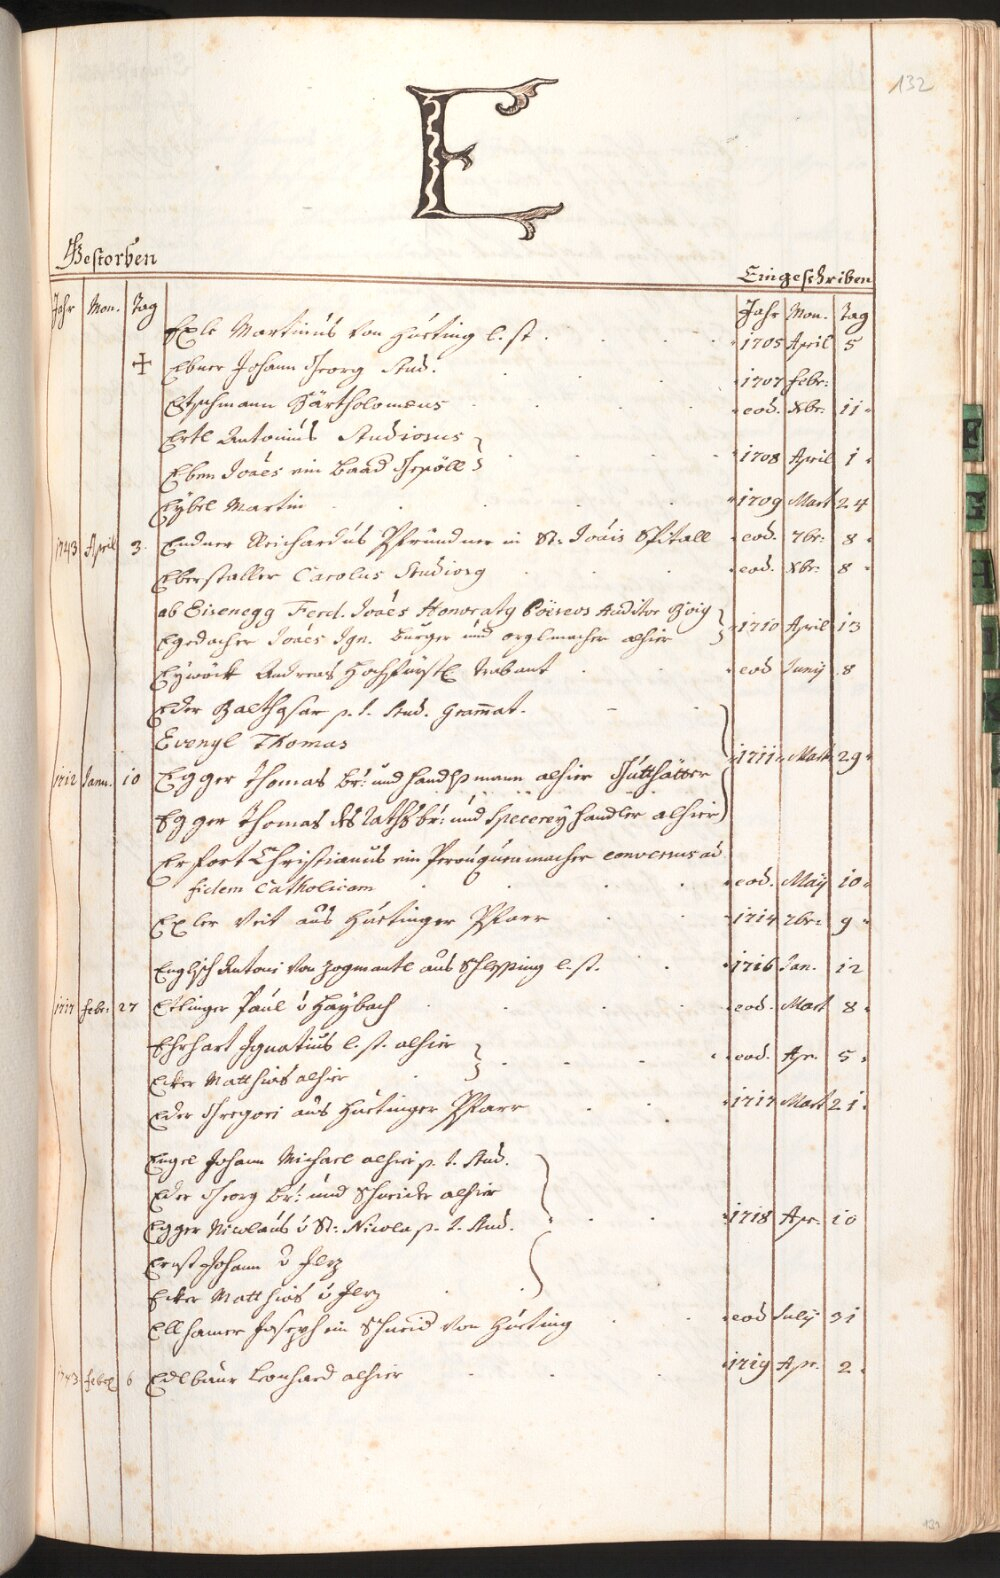 132
E
Gestorben
Eingeschriben
Jahr Mon. Tag Jahr Mon. Tag
Exle Martinus von Hütting l. st. 1705 April 5
+ Ebner Johann Georg Stud. 1707 Febr:
Etschmann Bärtholomeus eod. Xbr: 11
Ertl Antonius Studiosus
Eben Joães ein Baad Gsöll 1708 April 1
Eybel Martin 1709 Mart 24
1743 April 3 Endner Reichardus Pfründner in St: Joãis Spitall eod. 7br: 8
Eberstaller Carolus Studiosg eod. Xbr: 8
ab Eisenegg Ferd. Joães Honoraty Poëseos Auditor
Egedacher Joães Ign. Burger und orglmacher alhier 1710 April 13
Andreas Hochfürstl Trabant eod Junij 8
Eder Balthasar p. t. Stud. Grammat.
Evengl Thomas 1711 Mart 29
1712 Janu. 10 Egger Thomas br: und handlsmann alhier
Egger Thomas des Raths br: und Specerey handler alhier
Erfort Christianus ein Perouquenmacher conversus ad
fidem Catholicam eod. Maij 10
Exler Veit aus Hüttinger Pfarr 1714 7br: 9
Englisch Antoni von aus l. st. 1716 Jan. 12
1717 Febr: 27 Ettinger Paul v Haybach eod. Mart 8
Ehrhart Ignatius l. st. alhier
Ecker Matthias alhier eod. Apr. 5
Eder Gregori aus Hüttinger Pfarr 1717 Mart 21
Engel Johann Michael alhier p. t. Stud.
Eder Georg br: und Schneider alhier
Egger Nicolaus v St: Nicola p. t. Stud. 1718 Apr. 10
Ernst Johann v Ilz
Ecker Matthias v Ilz
Ellhamer Joseph ein Schneid von Hütting eod July 31
1743 Febr 6 Edlbaur Leonhard alhier 1719 Apr. 2
E
F
H
I
K
131